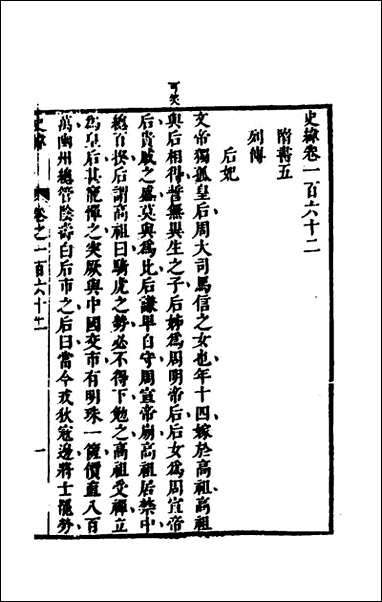 史緯卷一百六十二
隋書五
列傳
后妃
文帝獨孤皇后周大司馬信之女也年十四嫁於高祖高祖
與后相得誓無異生之子后姊為周明帝后后女為周宣帝
后貴戚之盛莫與為比后謙卑自守周宣帝崩高祖居禁中
總百揆后謂高祖曰騎虎之勢必不得下勉之高祖受禪立
為皇后甚寵憚之突厥與中國交市有明珠一篋價直八百
萬幽州總管陰壽白后市之后曰當今戎狄寇邊將士罷勞
可笑
史緯
卷之一百六十二
一